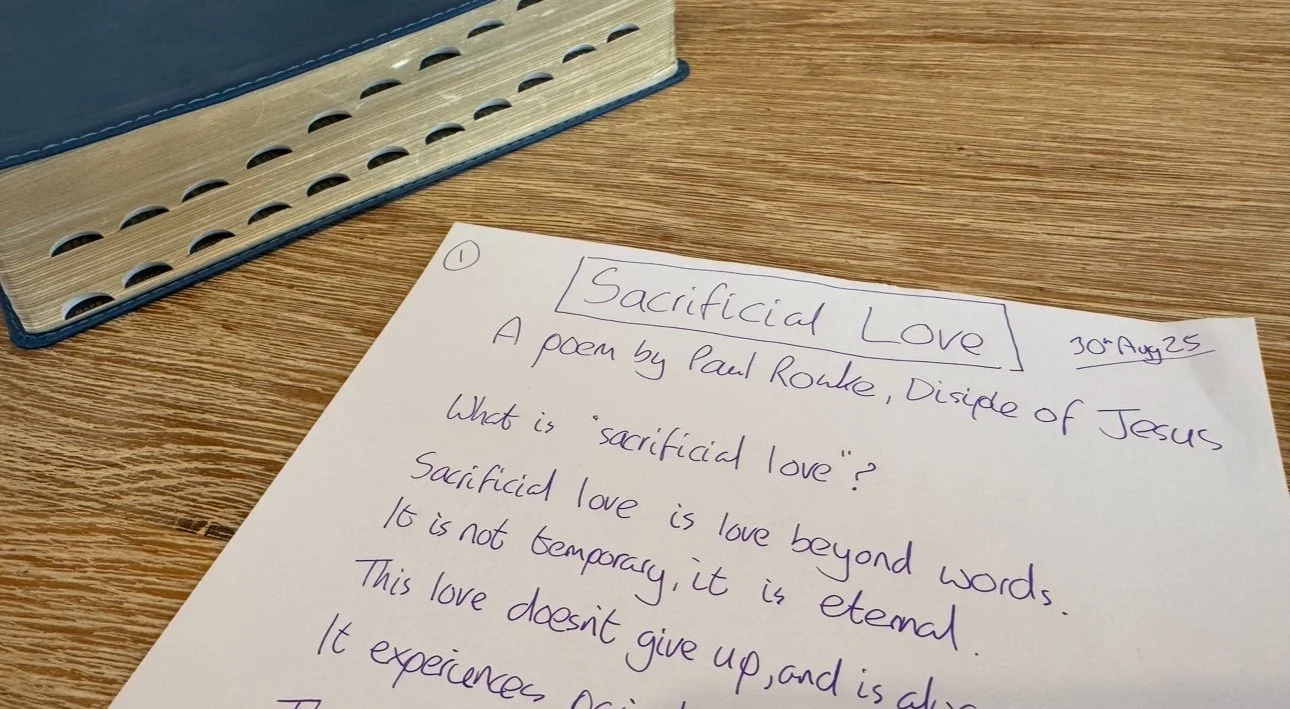 1
Sacrificial Love
30th Aug 25
A poem by Paul Rouke, Disiple of Jesus
What is "sacrificial love"?
Sacrificial love is love beyond words.
It is not temporary, it is eternal.
This love doesn't give up, and is
It experiences